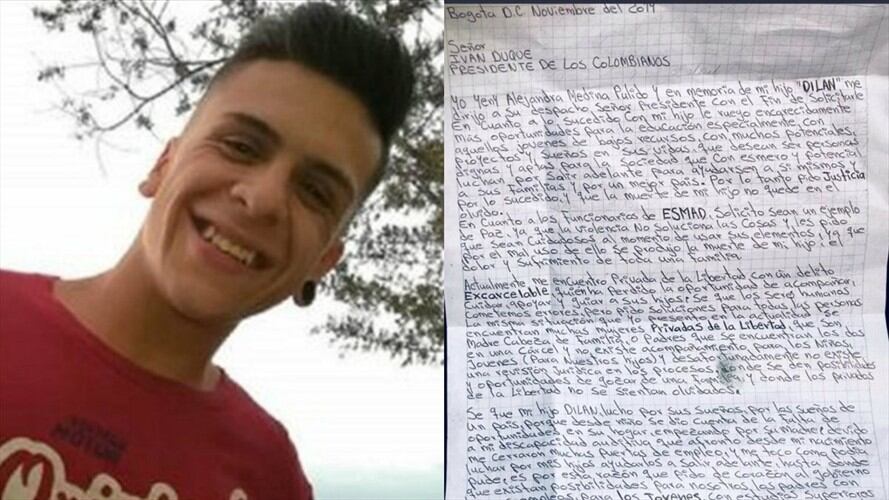 Bogota D.C. Noviembre del 2019
Señor
IVAN DUQUE
PRESIDENTE DE LOS COLOMBIANOS
Yo Yeny Alejandra Medina Pulido y en memoria de mi hijo "DILAN" me
dirijo a su despacho Señor Presidente con el Fin de Solicitarle
En cuanto a lo sucedido con mi hijo le ruego encarecidamente
más oportunidades para la educación especialmente con
aquellos jovenes de bajos recursos, con muchos potenciales,
proyectos y sueños en sus vidas que desean ser personas
dignas y aptas para la Sociedad que con esmero y potencial
luchan por Salir adelante para ayudarsen a si mismas y
a sus Familias y por un mejor país. Por lo tanto pido Justicia
por lo sucedido, y que la muerte de mi hijo no quede en el
olvido.
En cuanto a los Funcionarios de ESMAD. Solicito sean un ejemplo
de Paz, ya que la violencia No soluciona las Cosas y les pido
que sean Cuidadosos al momento de usar sus elementos ya que
por el mal uso de ello se produjo la muerte de mi hijo, el
dolor y Sufrimiento de toda una familia.
Actualmente me encuentro Privada de la Libertad con un delito
Excarcelable quien ha perdido la oportunidad de acompañar,
Cuidar, apoyar y guiar a sus hijos: Se que los seres humanos
Cometemos errores, pero pido soluciones Para todas las personas
La misma situación que Yo presento en la actualidad se
encuentran muchas mujeres Privadas de la Libertad, que son
Madre Cabeza de Familia, o Padres que se encuentran los dos
en una Cárcel y no existe acompañamiento para los Niños,
Jovenes (Para Nuestros hijos) y desafortunadamente no existe
una revisión Juridica en los procesos, donde se den posibilidades
y oportunidades de gozar de una Familia, y donde los privados
de la Libertad no se sientan olvidados.
Se que mi hijo DILAN, lucho por sus sueños, por los sueños de
un país, porque desde niño se dio cuenta de la falta de
oportunidades en su hogar, empezando por su madre; debido
a mi discapacidad auditiva que afronto desde mi nacimiento
me cerraron muchas puertas de empleo, y me toco como podía
luchar por mis hijos ayudarlos a Salir adelante, hasta donde
pude; es por esta razón que pido de corazón al gobierno
que existan posibilidades para nosotros los padres con